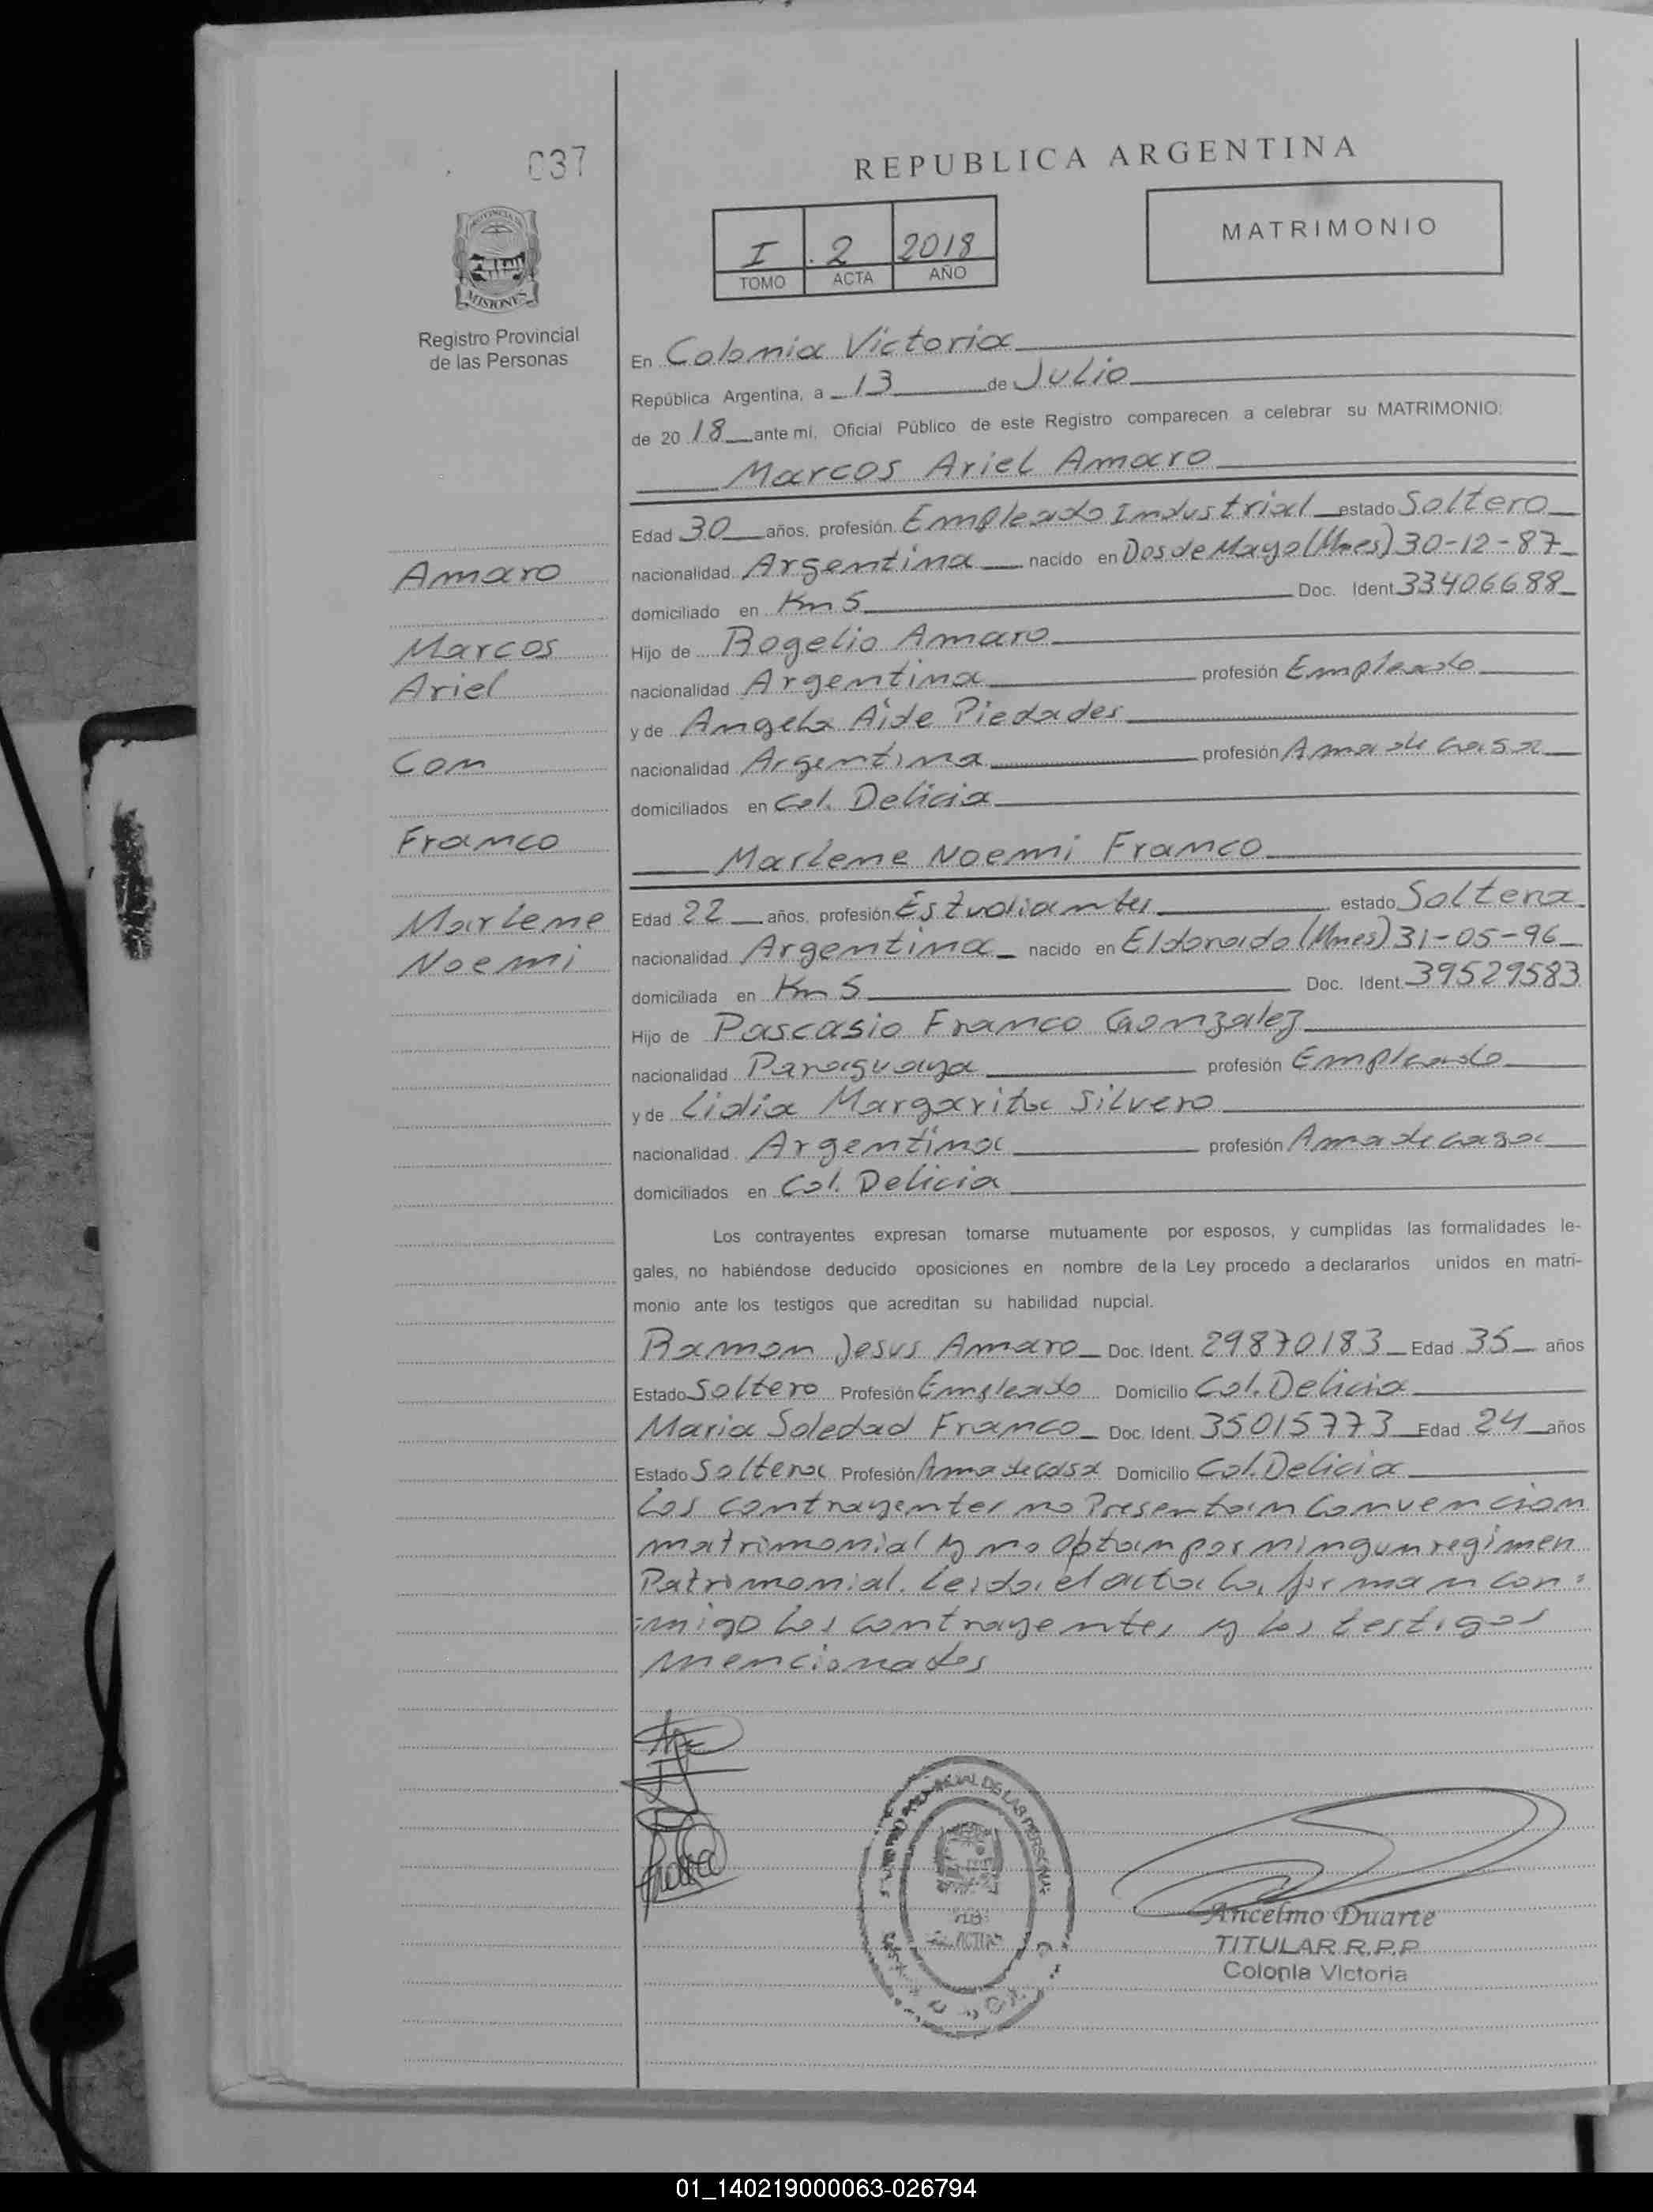 037
REPUBLICA ARGENTINA
MATRIMONIO
I 2 2018
TOMO ACTA AÑO
PROVINCIA DE
MISIONES
Registro Provincial
de las Personas
En Colonia Victoria
República Argentina, a 13 de Julio
de 20 18 ante mi, Oficial Público de este Registro comparecen a celebrar su MATRIMONIO:
Marcos Ariel Amaro
Edad 30 años, profesión Empleado Industrial estado Soltero
nacionalidad Argentina nacido en Dos de Mayo (Mnes) 30-12-87
domiciliado en Km 5 Doc. Ident 33406688
Hijo de Rogelio Amaro
nacionalidad Argentina profesión Empleado
y de Angela Aide Piedades
nacionalidad Argentina profesión Ama de casa
domiciliados en Col. Delicia
Marlene Noemi Franco
Edad 22 años, profesión Estudiantes estado Soltera
nacionalidad Argentina nacido en Eldorado (Mnes) 31-05-96
domiciliada en Km 5 Doc. Ident. 39529583
Hijo de Pascasio Franco Gonzalez
nacionalidad Paraguaya profesión Empleado
y de Lidia Margarita Silvero
nacionalidad Argentina profesión Ama de casa
domiciliados en Col. Delicia
Amaro
Marcos
Ariel
Con
Franco
Marlene
Noemi
Los contrayentes expresan tomarse mutuamente por esposos, y cumplidas las formalidades le-
gales, no habiéndose deducido oposiciones en nombre de la Ley procedo a declararlos unidos en matri-
monio ante los testigos que acreditan su habilidad nupcial.
Ramon Jesus Amaro Doc. Ident. 29870183 Edad 35 años
Estado Soltero Profesión Empleado Domicilio Col. Delicia
Maria Soledad Franco Doc. Ident. 35015773 Edad 24 años
Estado Soltera Profesión Ama de casa Domicilio Col. Delicia
Los contrayentes no Presentan Convencion
matrimonial y no optan por ningun regimen
Patrimonial. Leida el acta la firman con-
migo los contrayentes y los testigos
mencionados
Ancelmo Duarte
TITULAR R.P.P
Colonia Victoria
01_140219000063-026794